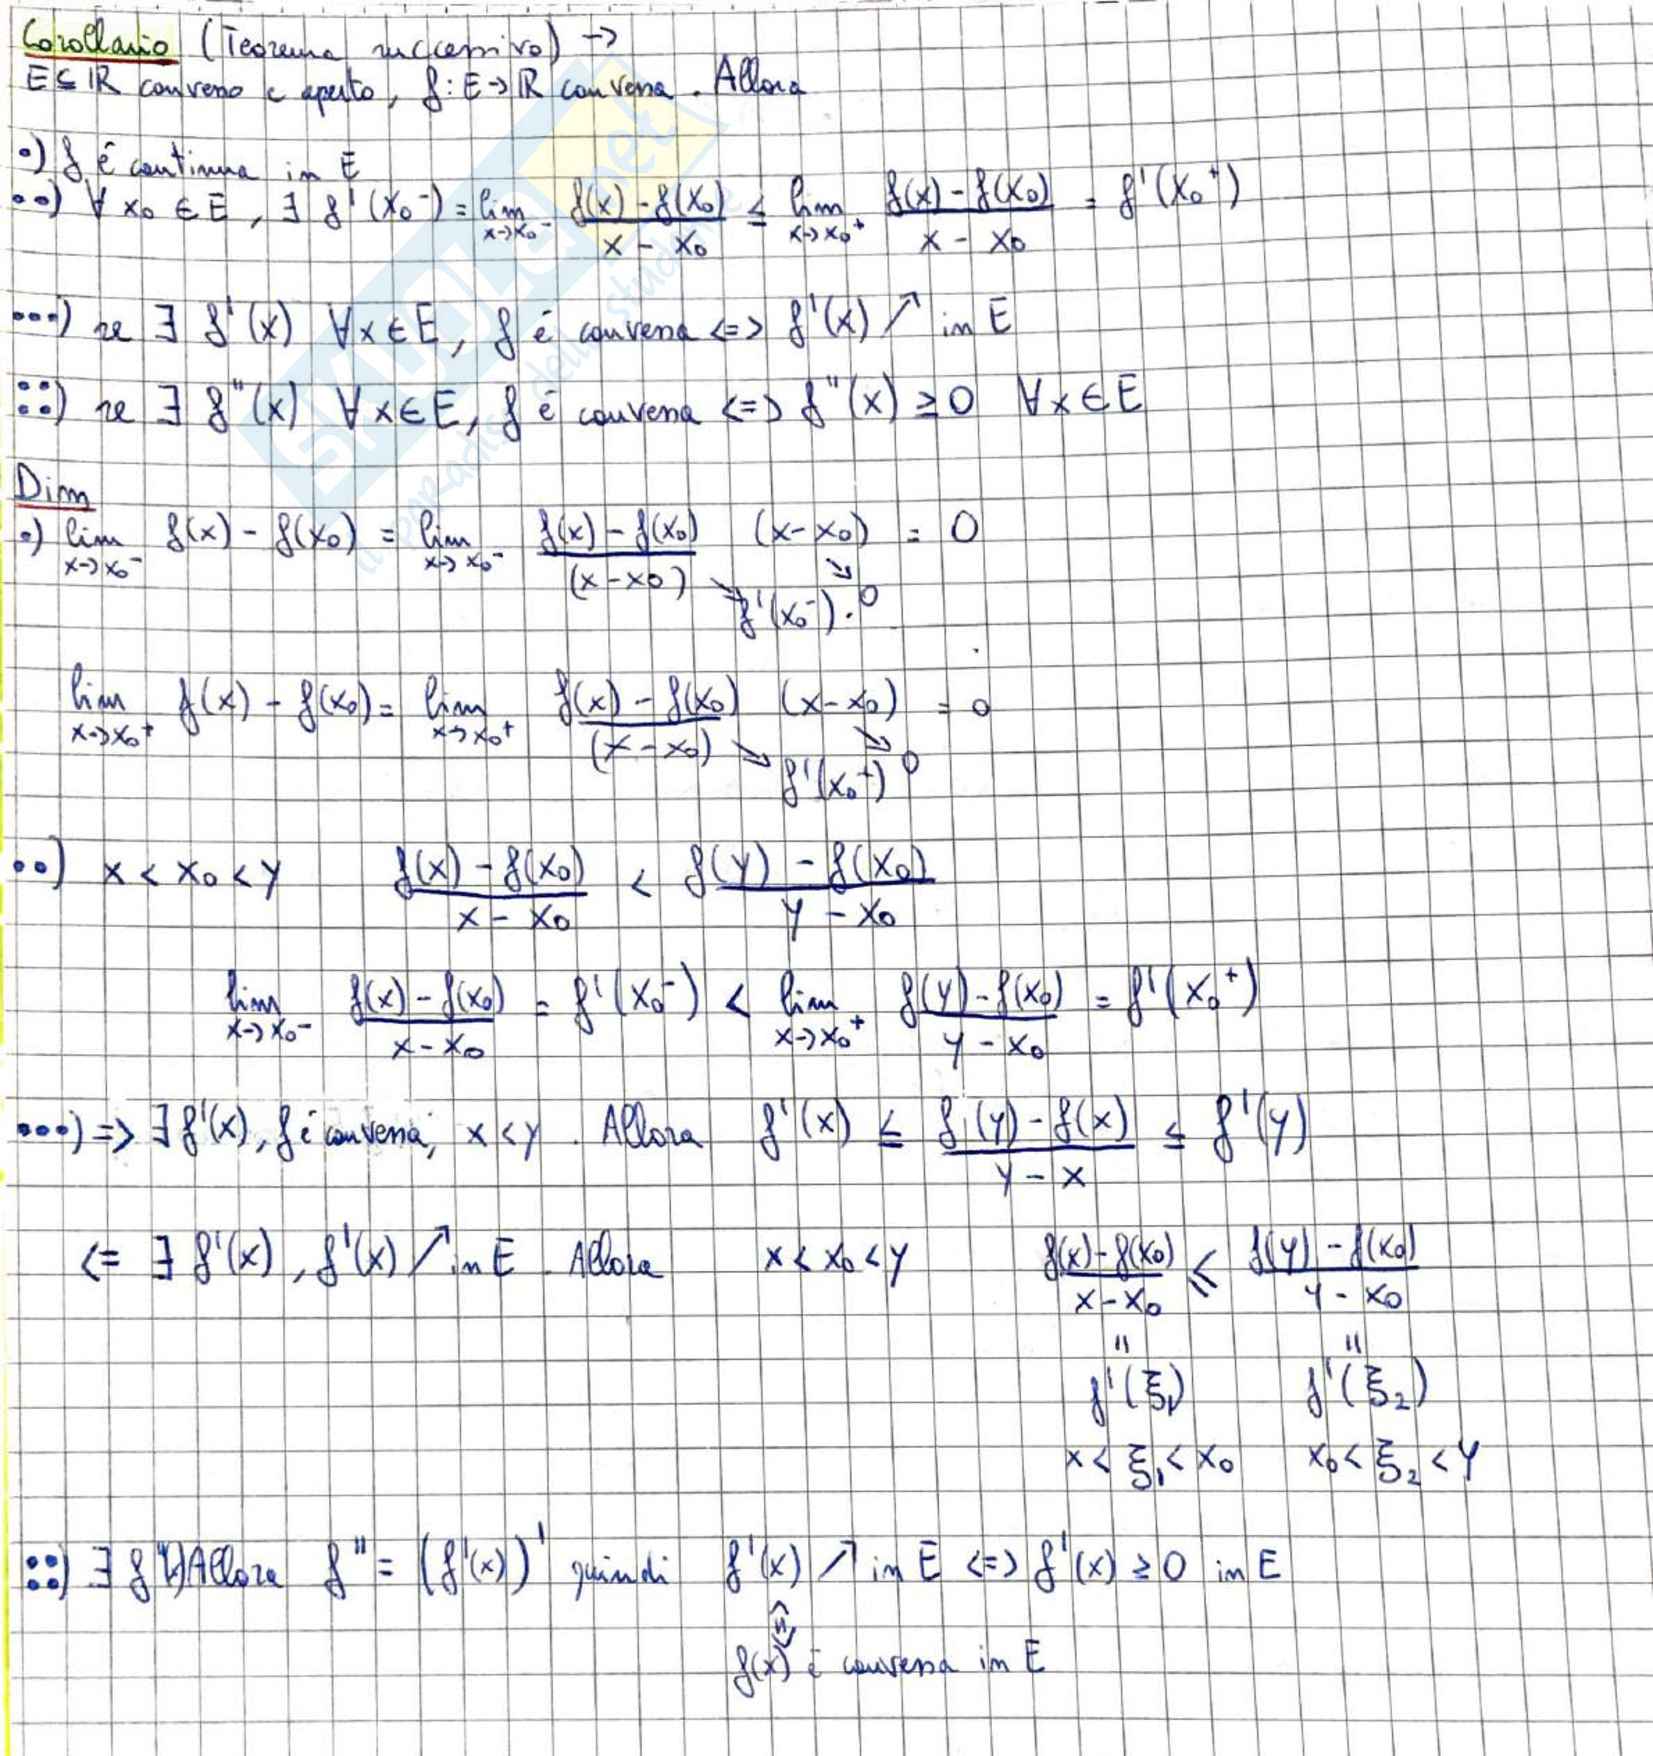 Corollario (Teorema successivo) →
E ⊆ ℝ convesso e aperto, f: E → ℝ convessa. Allora
•) f é continua in E
••) ∀ x₀ ∈ E, ∃ f'(x₀⁻) = lim x→x₀⁻ (f(x) - f(x₀))/(x - x₀) ≤ lim x→x₀⁺ (f(x) - f(x₀))/(x - x₀) = f'(x₀⁺)
•••) se ∃ f'(x) ∀x∈E, f é convessa <=> f'(x) ↗ in E
::) se ∃ f''(x) ∀x∈E, f é convessa <=> f''(x) ≥ 0 ∀x∈E
Dim
•) lim x→x₀⁻ f(x) - f(x₀) = lim x→x₀⁻ (f(x) - f(x₀))/(x-x₀) (x-x₀) = 0
↘ f'(x₀⁻) · ↘ 0
lim x→x₀⁺ f(x) - f(x₀) = lim x→x₀⁺ (f(x) - f(x₀))/(x-x₀) (x-x₀) = 0
↘ f'(x₀⁺) ↘ 0
••) x < x₀ < y (f(x) - f(x₀))/(x - x₀) < (f(y) - f(x₀))/(y - x₀)
lim x→x₀⁻ (f(x) - f(x₀))/(x - x₀) = f'(x₀⁻) < lim x→x₀⁺ (f(y) - f(x₀))/(y - x₀) = f'(x₀⁺)
•••) => ∃ f'(x), f é convessa, x < y. Allora f'(x) ≤ (f(y) - f(x))/(y - x) ≤ f'(y)
<= ∃ f'(x), f'(x) ↗ in E. Allora x < x₀ < y (f(x) - f(x₀))/(x - x₀) ≤ (f(y) - f(x₀))/(y - x₀)
= =
f'(ξ₁) f'(ξ₂)
x < ξ₁ < x₀ x₀ < ξ₂ < y
::) ∃ f''(x) Allora f'' = (f'(x))' quindi f'(x) ↗ in E <=> f'(x) ≥ 0 in E
<=>
f(x) é convessa in E